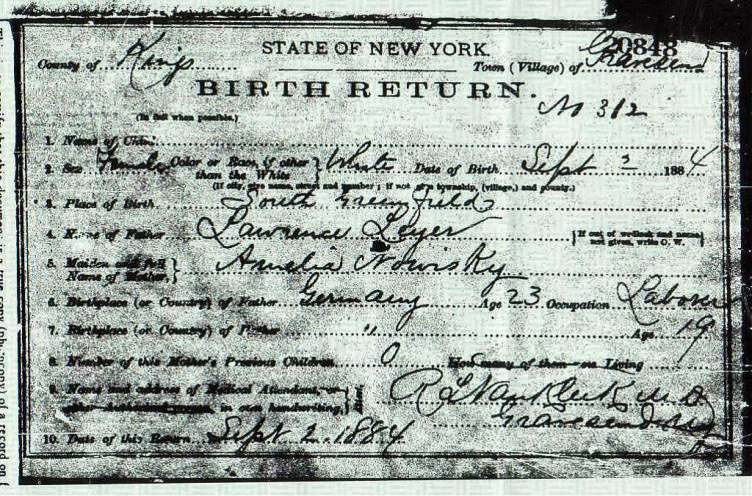 20848
STATE OF NEW YORK.
County of Kings Town (Village) of Gravesend
BIRTH RETURN.
No 312
(In full when possible.)
1. Name of Child
2. Sex Female Color or Race, if other than the White } White Date of Birth, Sept 2 1884
(If city, give name, street and number; if not give township, (village,) and county.)
3. Place of Birth South Greenfield
4. Name of Father Lawrence Leyer { If out of wedlock and name not given, write O. W.
5. Maiden and full Name of Mother. } Amelia Nowisky
6. Birthplace (or Country) of Father Germany Age 23 Occupation Laborer
7. Birthplace (or Country) of Mother " Age 19
8. Number of this Mother's Previous Children 0 How many of them now Living
9. Name and address of Medical Attendant, or other in own handwriting, } R L Van Kleek M. D.
Gravesend
10. Date of this Return Sept 2. 1884